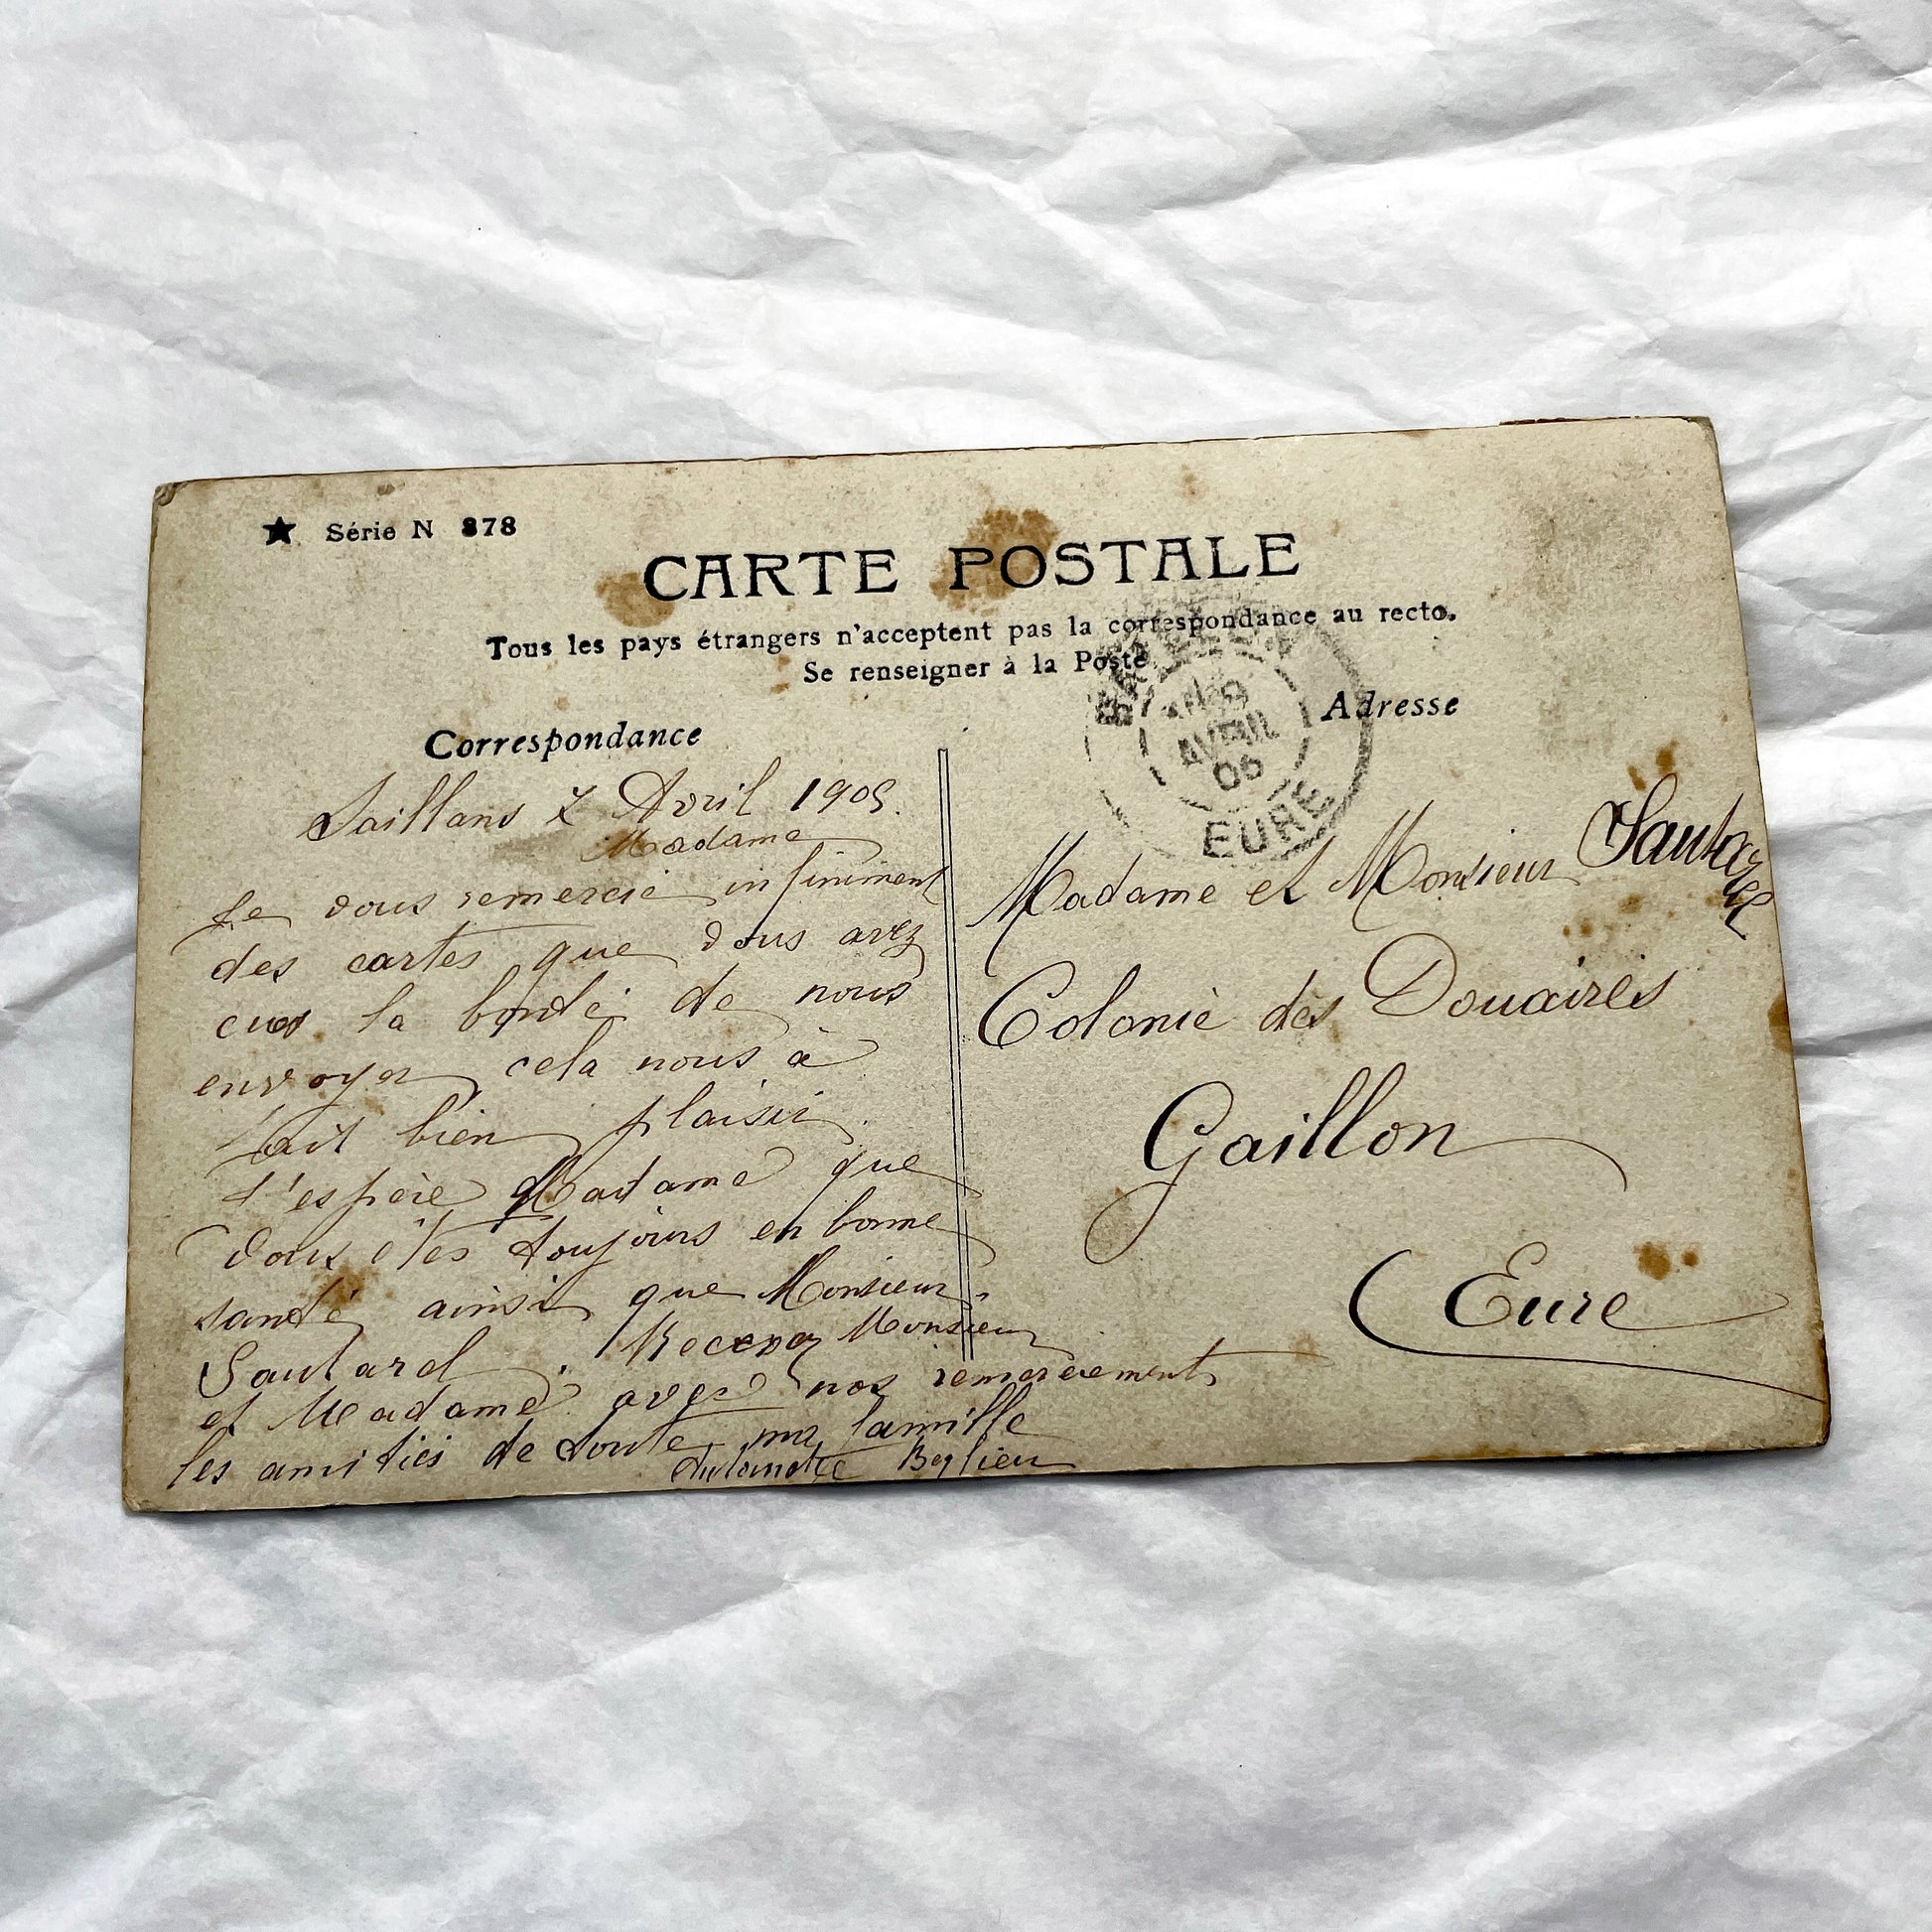 ★ Série N 878
CARTE POSTALE
Tous les pays étrangers n'acceptent pas la correspondance au recto.
Se renseigner à la Poste
Correspondance
Saillans 7 Avril 1905.
Madame
Je vous remercie infiniment
des cartes que vous avez
eues la bonté de nous
envoyer cela nous à
fait bien plaisir.
J'espère Madame que
vous êtes toujours en bonne
santé ainsi que Monsieur
Sautard. Recevez Monsieur
et Madame avec nos remerciements
les amitiés de toute ma famille
Beglieu
AVRIL
05
EURE
Adresse
Madame et Monsieur
Colonie des Douaires
Gaillon
Eure